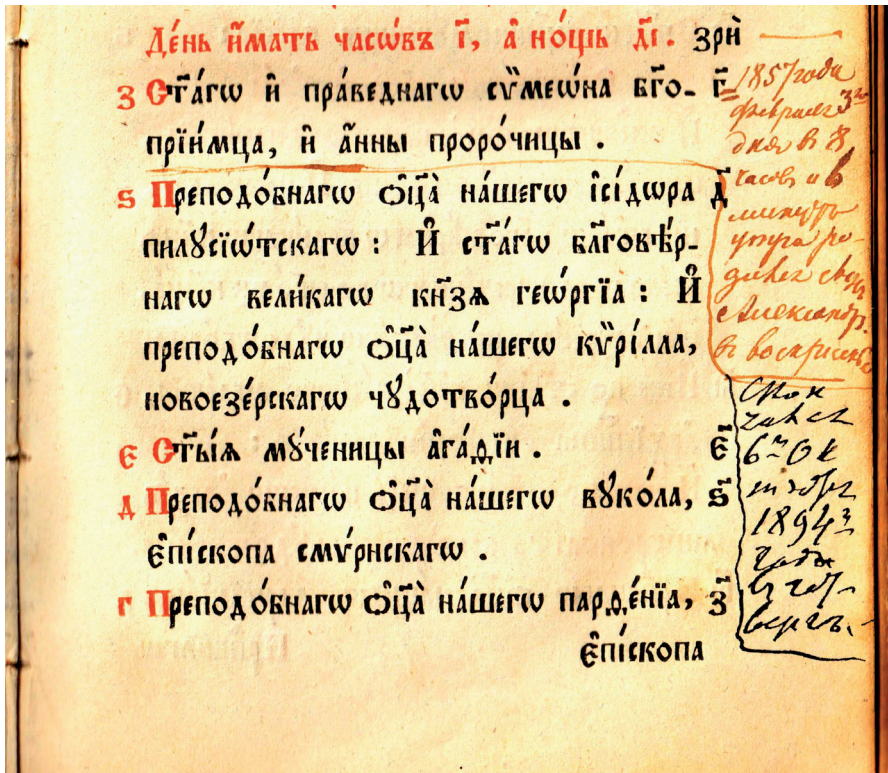 Де́нь и҆́мать часѡ́въ і҃, а҆ но́щь д҃і. зрѝ
з Ст҃а́гѡ и҆ пра́веднагѡ сѷмеѡ́на бг҃о- г҃
прїи́мца, и҆ а҆́нны проро́чицы .
ѕ Преподо́бнагѡ ѻ҆ц҃а̀ на́шегѡ і҆сі́дѡра д҃
пилꙋсїѡ́тскагѡ : И҆ ст҃а́гѡ бл҃говѣ́р-
нагѡ вели́кагѡ кн҃зѧ геѡ́ргїа : И҆
преподо́бнагѡ ѻ҆ц҃а̀ на́шегѡ кѷрі́лла,
новоезе́рскагѡ чꙋдотво́рца .
є Ст҃ы́ѧ мꙋ́ченицы а҆га́ѳїи . є҃
д Преподо́бнагѡ ѻ҆ц҃а̀ на́шегѡ вꙋко́ла, ѕ҃
є҆пі́скопа смѵ́рнскагѡ .
г Преподо́бнагѡ ѻ҆ц҃а̀ на́шегѡ парѳе́нїа, з҃
є҆пі́скопа
1857 года
февраля 3го
дня в 8
часов и в
минутъ
утра ро-
дился сынъ
Александръ
въ воскрисенье
Скон
чался
6го Ок
тября
1894
года
въ чет-
вергъ.